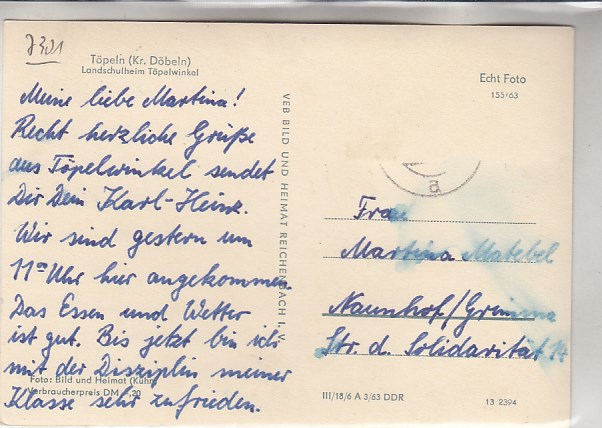 7301
Töpeln (Kr. Döbeln)
Landschulheim Töpelwinkel
Meine liebe Martina!
Recht herzliche Grüße
aus Töpelwinkel sendet
Dir Dein Karl-Heinz.
Wir sind gestern um
11⁰⁰ Uhr hier angekommen.
Das Essen und Wetter
ist gut. Bis jetzt bin ich
mit der Disziplin meiner
Klasse sehr zufrieden.
Foto: Bild und Heimat (Kühn)
Verbraucherpreis DM -,20
VEB BILD UND HEIMAT REICHENBACH I. V.
Echt Foto
155/63
a
Frau
Martina Matebel
Naunhof/Grimma
Str. d. Solidarität 14
III/18/6 A 3/63 DDR
13 2394